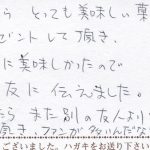 ら とっても美味しい菓
ゼントして頂き、
に美味しかったので
友に伝えました。
たら また別の友人より
頂き ファンが多いんだな
ございました。ハガキをお送り下さ